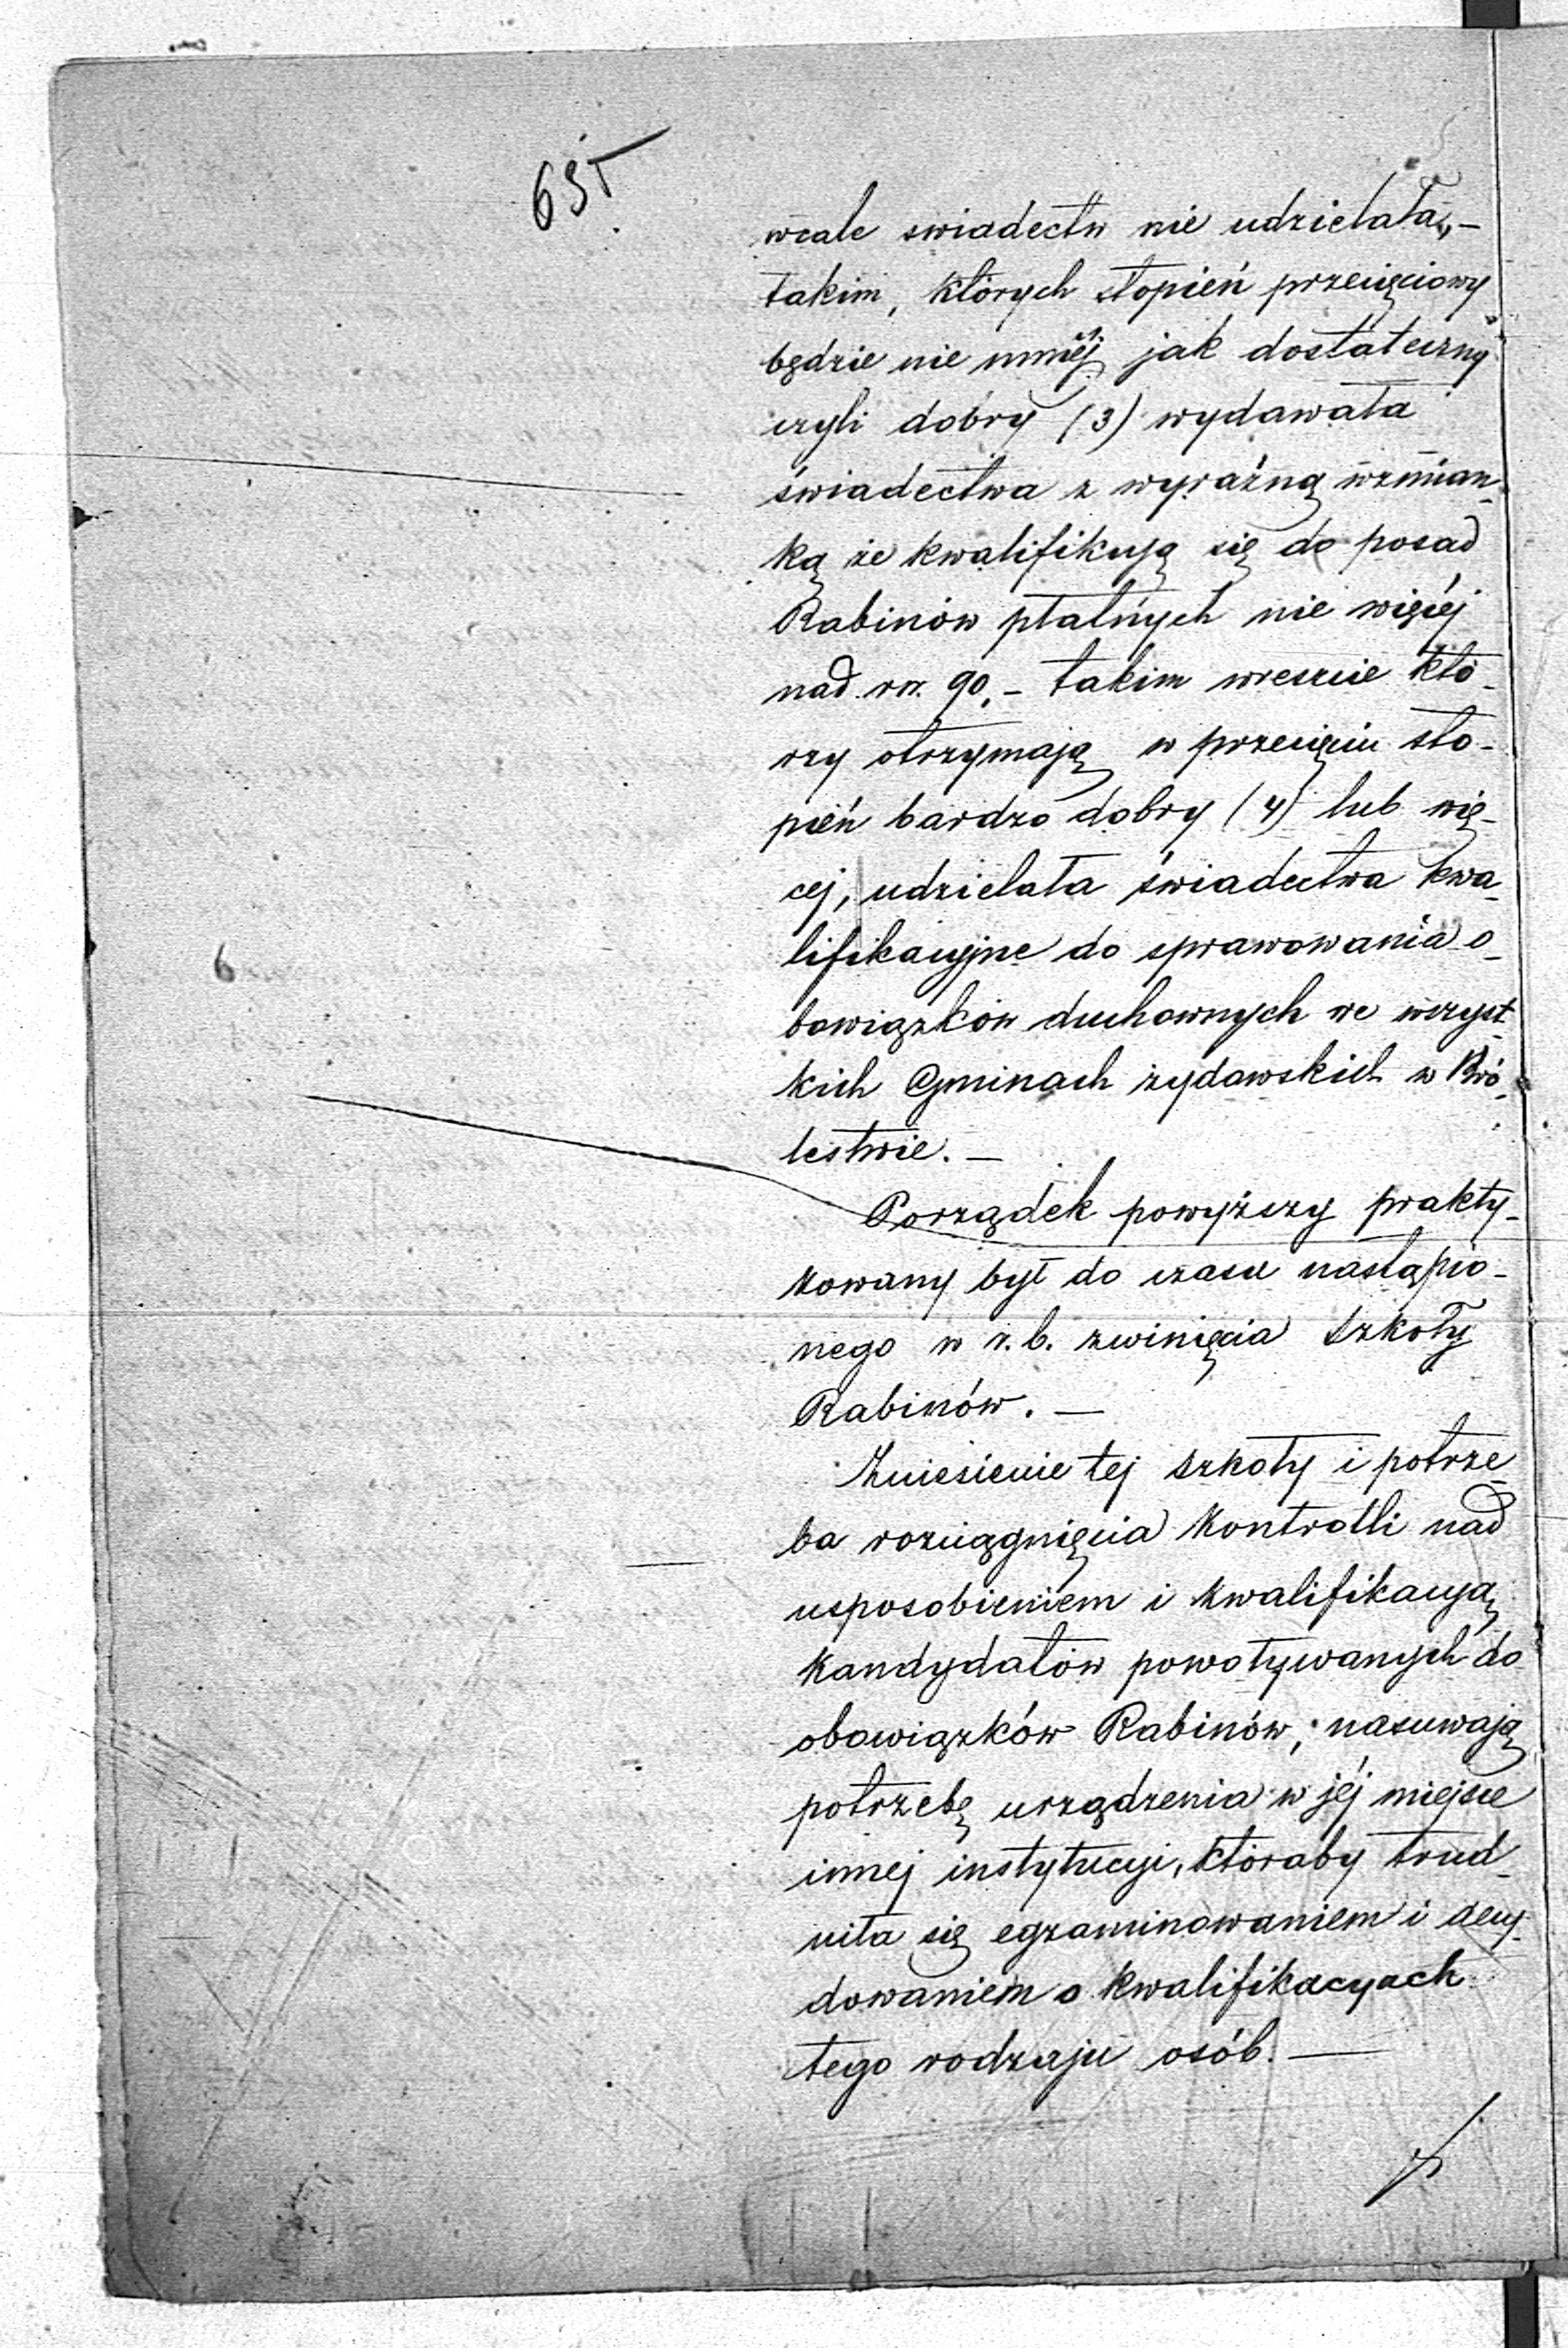 635
wcale swiadectw nie udzielała, –
takim, których stopień przecięciowy
będzie nie mniéj jak dostateczny
czyli dobry (3) wydawała
świadectwa z wyraźną wzmian-
ką że kwalifikują się do posad
Rabinów płatnych nie więcéj
nad rsr. 90. – takim wreszcie któ-
rzy otrzymają w przecięciu sto-
pień bardzo dobry (4) lub wię-
cej, udzielała świadectwa kwa-
lifikacyjne do sprawowania o-
bowiązków duchownych we wszyst-
kich Gminach żydowskich w Kró-
lestwie. –
Porządek powyższy prakty-
kowany był do czasu nastąpio-
nego w r. b. zwinięcia Szkoły
Rabinów. –
Zniesienie tej szkoły i potrze-
ba rozciągnięcia kontrolli nad
usposobieniem i kwalifikacyą
kandydatów powoływanych do
obowiązków Rabinów, nasuwają
potrzebę urządzenia w jéj miejsce
innej instytucyi, któraby trud-
niła się egzaminowaniem i decy-
dowaniem o kwalifikacyach
tego rodzaju osób. –